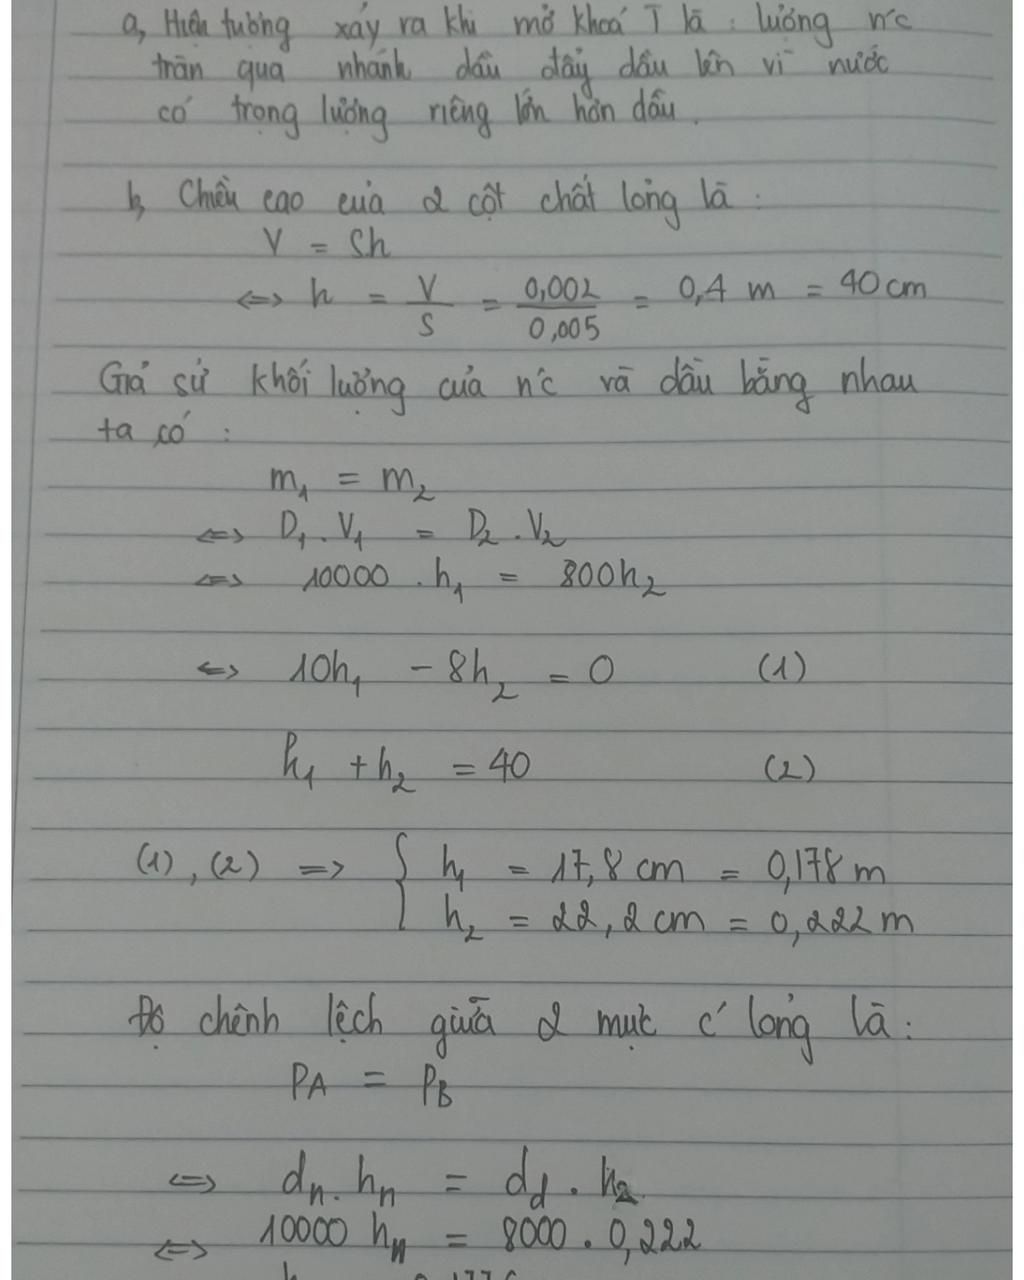 a, Hiện tượng xảy ra khi mở khoá T là : lượng n'c
tràn qua nhánh dầu đẩy dầu lên vì nước
có trọng lượng riêng lớn hơn dầu.
b, Chiều cao của 2 cột chất lỏng là :
V = Sh
<=> h = V/S = 0,002/0,005 = 0,4 m = 40 cm
Giả sử khối lượng của n'c và dầu bằng nhau
ta có :
m₁ = m₂
<=> D₁ . V₁ = D₂ . V₂
<=> 10000 . h₁ = 800h₂
<=> 10h₁ - 8h₂ = 0 (1)
h₁ + h₂ = 40 (2)
(1), (2) => { h₁ = 17,8 cm = 0,178 m
h₂ = 22,2 cm = 0,222 m
Độ chênh lệch giữa 2 mực c' lỏng là :
PA = PB
<=> dn . hn = dd . h₂
<=> 10000 hn = 8000 . 0,222